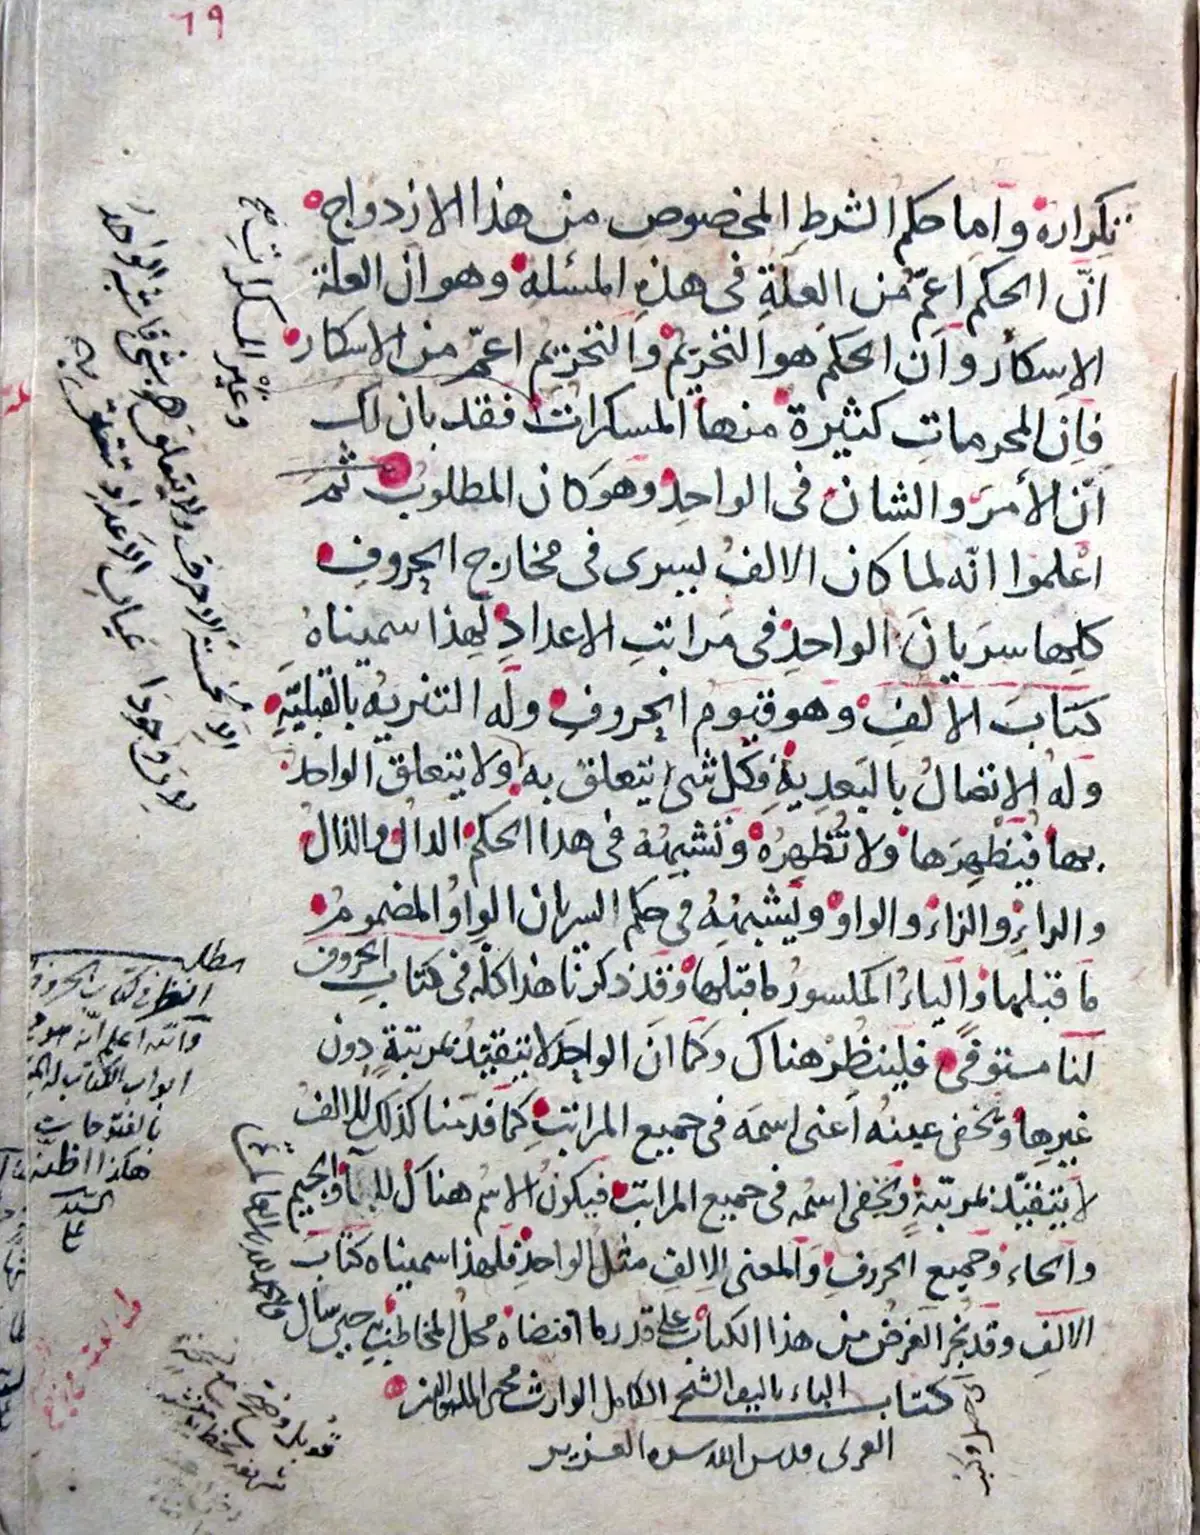 ٦٩
تكراره وأما حكم الشرط المخصوص من هذا الازدواج
انّ الحكم اعمّ من العلّةِ فى هذه المسئله وهو ان العلة
الاسكار وان الحكم هو التحريم والتحريم اعمّ من الاسكار
فان المحرمات كثيرة منها المسكرات فقد بان لك
انّ الأمرَ والشان فى الواحد وهو كان المطلوب ثم
اعلموا انّه لما كان الالف يسرى فى مخارج الحروفِ
كلها سريانَ الواحدِ فى مراتبِ الاعدادِ لهذا سميناهُ
كتابَ الالفِ وهو قيوم الحروفِ وله التنزيه بالقبليّةِ
وله الاتصالُ بالبَعديةِ فكل شى يتعلق به ولا يتعلق الواحد
بها فيُظهِرَها ولا تُظهِرُه وتشبهُهُ فى هذا الحكم الدال والذالُ
والراءِ والزاء والواو ويُشبهُهُ فى حكم السريان الواوُ المضمومُ
ما قبلها والياءُ المكسورُ ما قبلها وقد ذكرنا هذا كلّه فى كتابِ الحروف
لنا مستوفى فلينظرْ هناك وكما انّ الواحدَ لا يتقيّد بمرتبةٍ دون
غيرها ويخفى عينه أعنى اسمه فى جميع المراتبِ كما قدمنا كذلك الالف
لا يتقيّد بمرتبةٍ ويخفى اسمُه فى جميع المراتب فيكونُ الاسم هناك للباء والجيم
والحاء وجميع الحروفِ والمعنى للالفِ مثل الواحدِ فلهذا سميناه كتابَ
الالفِ وقد نجز الغرض من هذا الكتاب على قدر ما اقتضاه محل المخاطب حين سأل
كتاب الباء تاليف الشيخ الكامل الوارث محيى الملة والدين
العربى قدس الله سره العزيز
وغير المسكرات صح
الا بخمسة الاحرف ولا يتعلق هو بشئ فاشبه الواحد
لان وجود اعيان الاعداد تتعلق به
مطلب
انظر فى كتاب الحروف
والله اعلم انّه هو فى
ابواب الكتاب
بالفتوحات
هكذا اظنّه
قوبل وصح مع نسخة